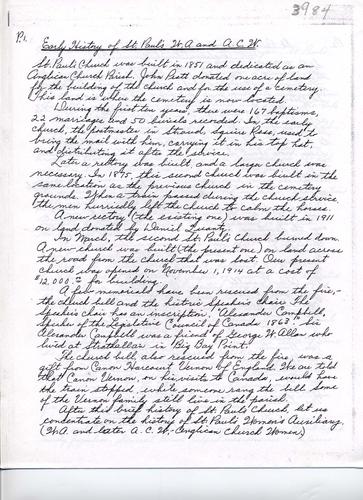 3984
P1.
Early History of St. Paul's W.A. and A.C.W.
St. Paul's Church was built in 1851 and dedicated as an
Anglican Church Parish. John Pratt donated one acre of land
for the building of the church and for the use of a cemetery.
This land is where the cemetery is now located.
During the first ten years, there were 167 baptisms,
22 marriages and 50 burials recorded. In the early
church, the postmaster in Stroud, Squire Ross, used to
bring the mail with him, carrying it in his top hat,
and distributing it after the service.
Later a rectory was built, and a larger church was
necessary. In 1875, this second church was built in the
same location as the previous church in the cemetery
grounds. When a train passed during the church service
the men hurriedly left the church to calm the horses.
A new rectory (the existing one) was built in 1911
on land donated by Daniel
In March, the second St. Paul's Church burned down.
A new church was built (the present one) on land across
the road from the church that was lost. Our present
church was opened on November 1, 1914 at a cost of
$12,000.00 for building.
A few memorials have been rescued from the fire,-
the church bell and the historic Speaker's chair. The
Speaker's chair has an inscription, "Alexander Campbell,
Speaker of the Legislative Council of Canada 1863". Sir
Alexander Campbell was a friend of George W. Allan who
lived at Strathallan in 'Big Bay Point'.
The church bell, also rescued from the fire, was a
gift from Canon Harcourt Vernon of England. We are told
that Canon Vernon, on his visits to Canada, would have
the train stopped, while someone rang the bell. Some
of the Vernon family still live in the parish.
After this brief history of St. Paul's Church, let us
concentrate on the history of St. Paul's Women's Auxiliary,
(W.A. and later A.C.W. - Anglican Church Women.)